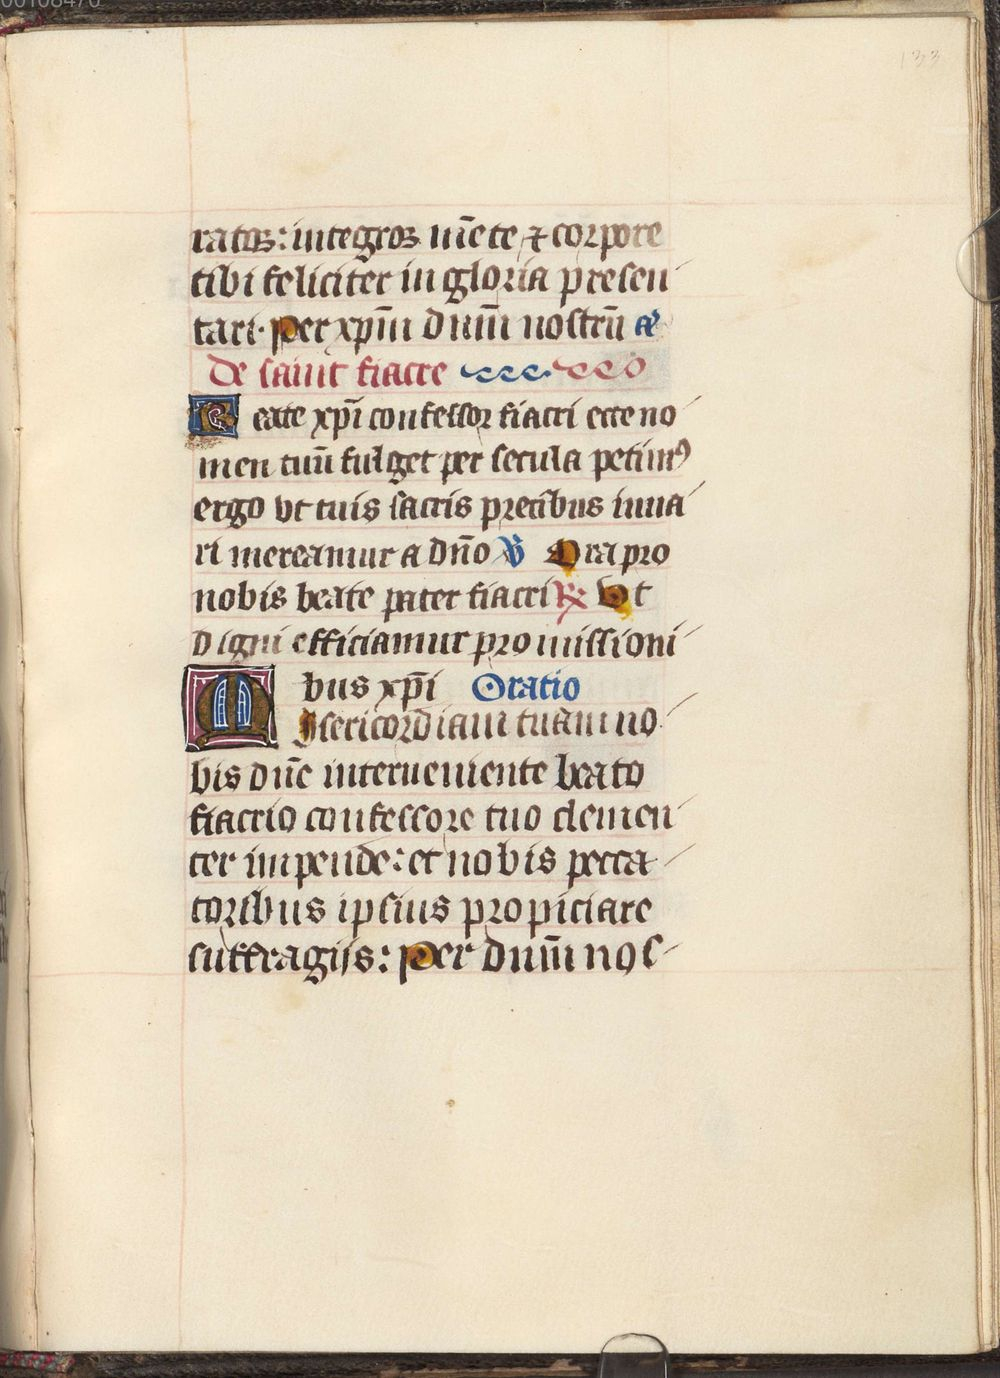 133
ratos: integros mēte ⁊ corpore
tibi feliciter in gloria presen
tari. Per xp̄m dnm̄ nostrū
De saint fiacre
Beate xp̄i confessor fiacri ecce no
men tuū fulget per secula petimꝰ
ergo vt tuis sacris precibus iuua
ri mereamur a dn̄o ℣ Ora pro
nobis beate pater fiacri ℟ Vt
digni efficiamur promissioni
bus xp̄i Oratio
Misericordiam tuam no
bis dn̄e interueniente beato
fiacrio confessore tuo clemen
ter impende: et nobis pecca
toribus ipsius propiciare
suffragijs: Per dnm̄ nos